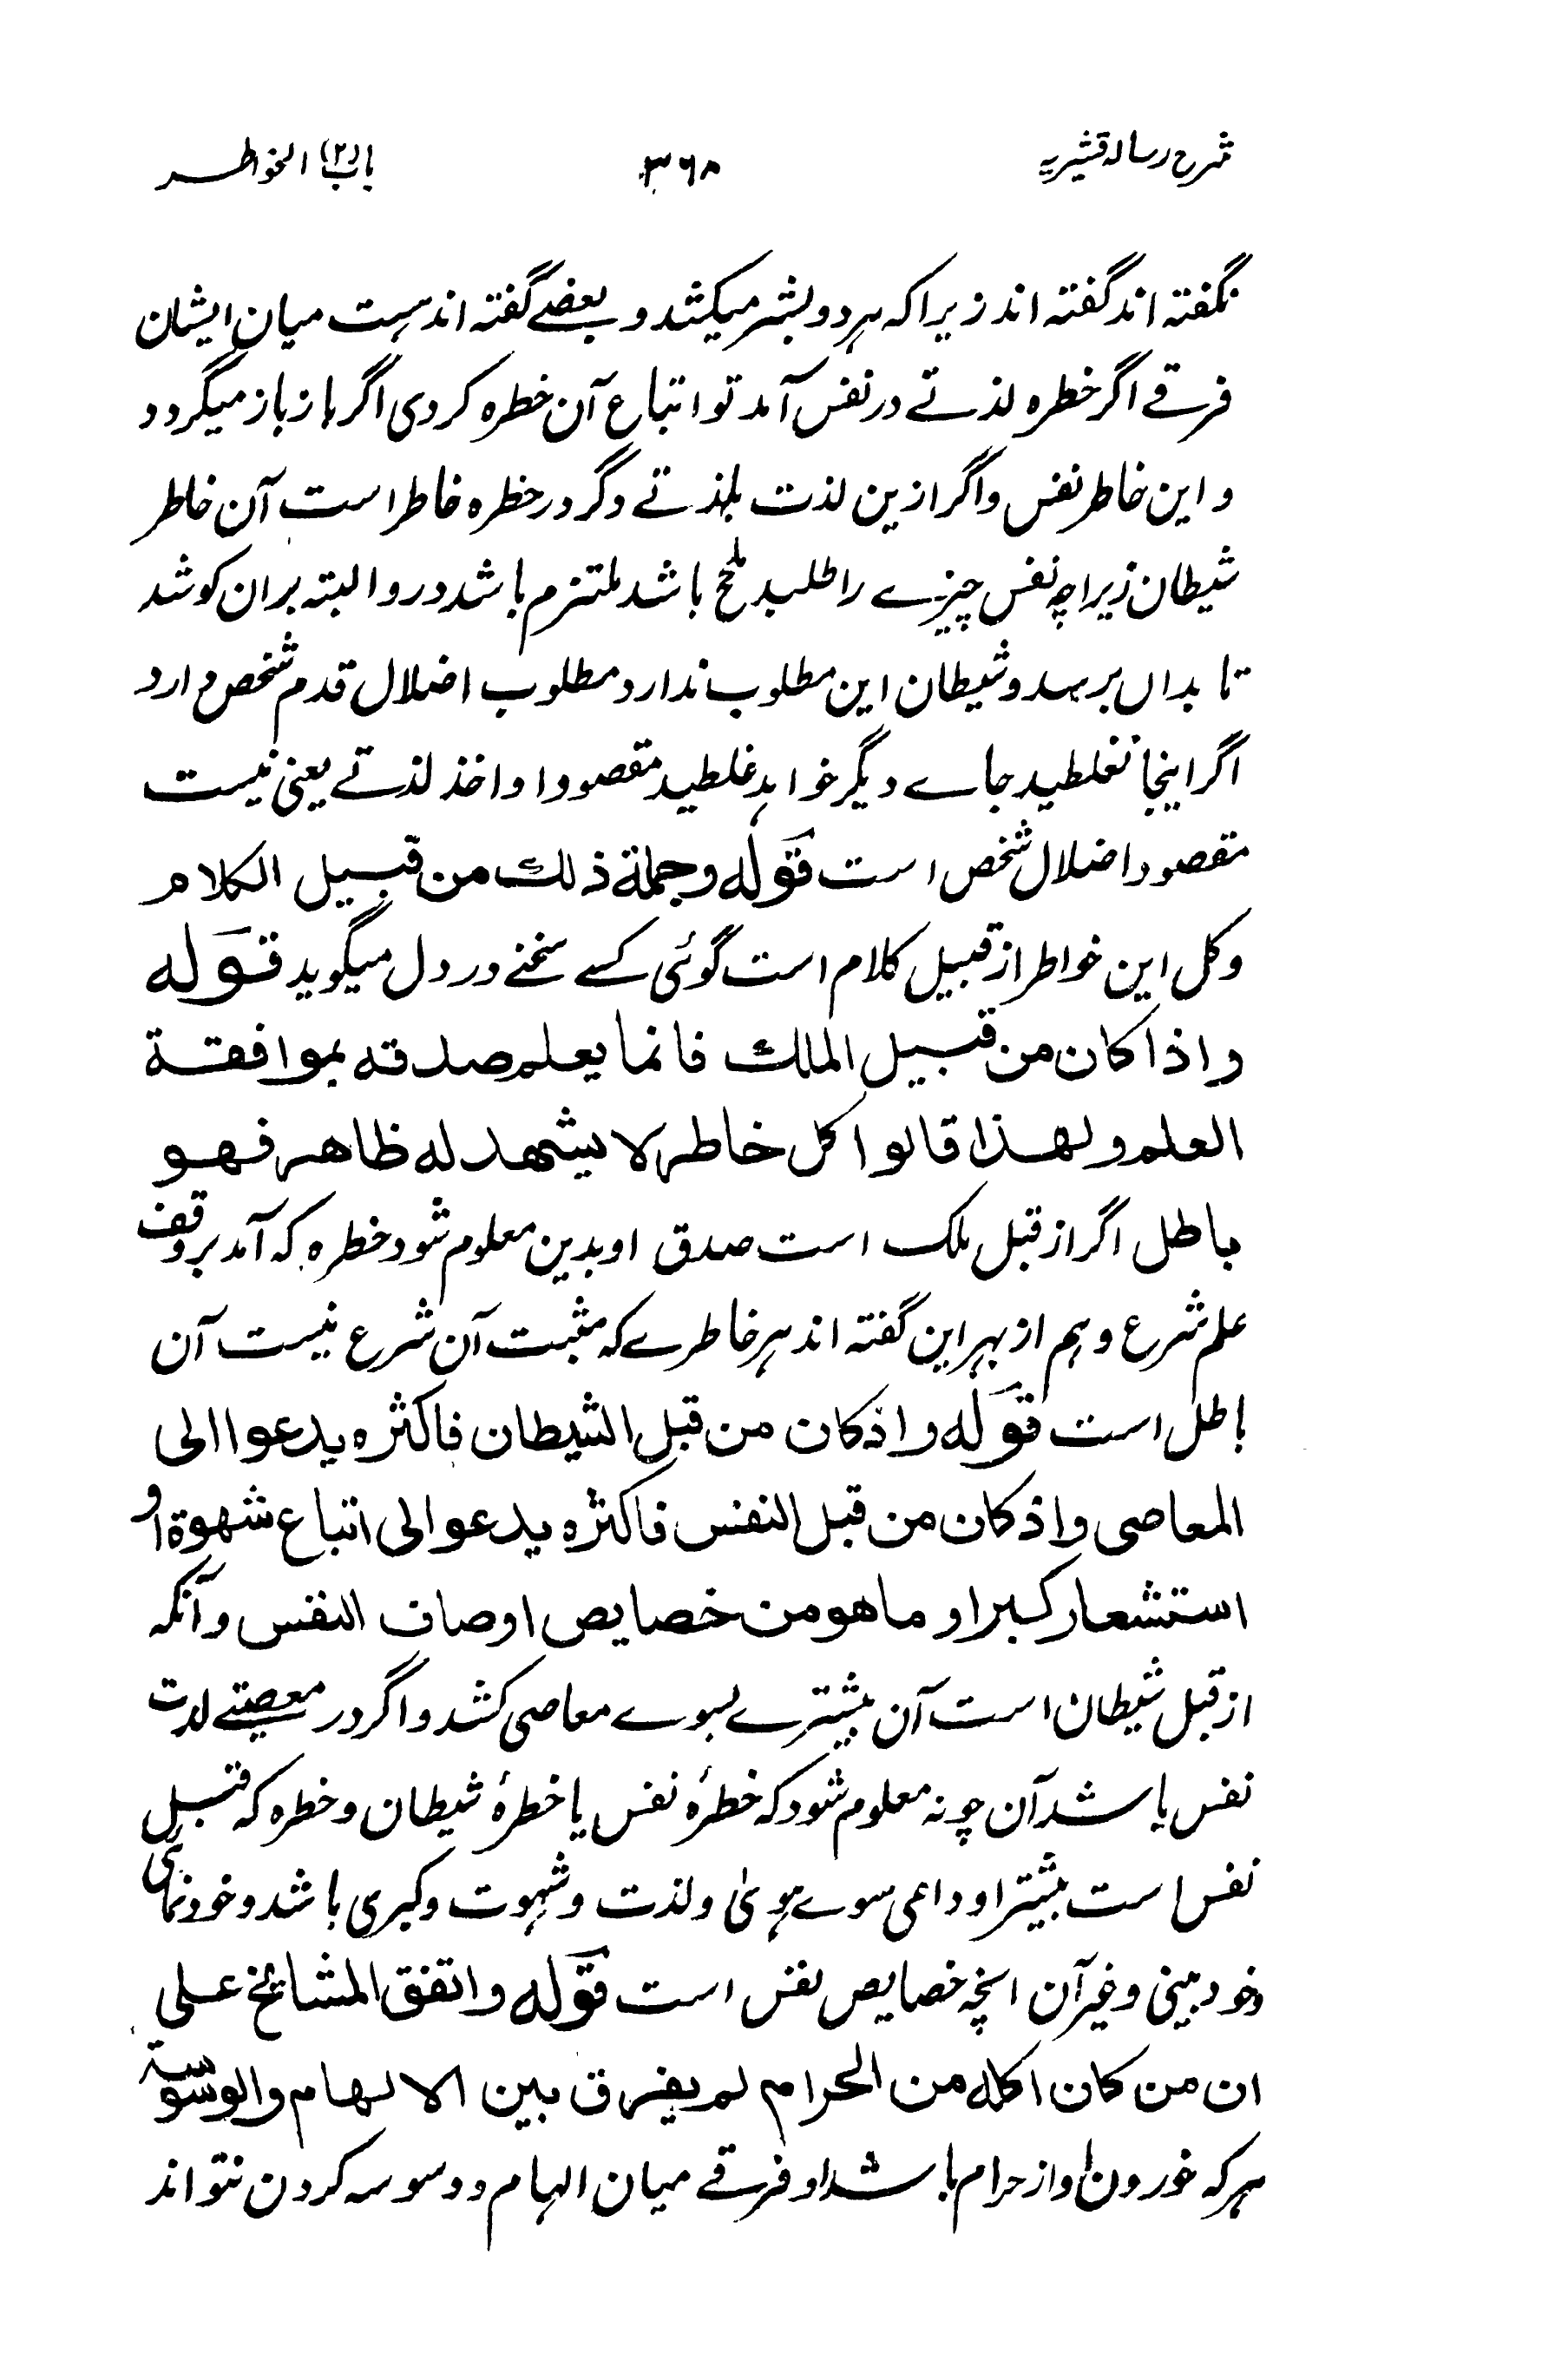 شرح رسالہ قشیریہ ۳۶۸ باب (۲) الخواطر
نگفتہ اند گفتہ اند زیرا کہ ہر دو بشر میکشد و بعضے گفتہ اند ہست میان ایشان
فرقے اگر خطرہ لذتے در نفس آمد تو اتباع آن خطرہ کردی اگر باز باز میگردد
و این خاطر نفس و اگر ازین لذت بلذتے دگر در خطرہ خاطر است آن خاطر
شیطان زیرا چہ نفس چیزے را طلبد ملح باشد ملتزم باشد درو البتہ بران کوشد
تا بداں برسد و شیطان این مطلوب ندارد مطلوب اضلال قدم شخص دارد
اگر اینجا نغلطید جاے دیگر خواہد غلطید مقصود او اخذ لذتے یعنی نیست
مقصود اضلال شخص است قوله وجملة ذلك من قبيل الكلام
و کل این خواطر از قبیل کلام است گوئی کسے سخنے در دل میگوید قوله
واذا كان من قبيل الملك فانما يعلم صدقه بموافقة
العلم ولهذا قالوا كل خاطر لا يشهد له ظاهر فهو
باطل اگر از قبل ملک است صدق او بدین معلوم شود خطرہ کہ آمد بر وقف
علم شرع و ہم از بہر این گفتہ اند ہر خاطرے کہ مثبت آن شرع نیست آن
باطل است قوله واذ كان من قبل الشيطان فاكثره يدعوا الى
المعاصى واذ كان من قبل النفس فاكثره يدعو الى اتباع شهوة او
استشعار كبر او ما هو من خصايص اوصاف النفس و آنکہ
از قبل شیطان است آن بیشترے بسوے معاصی کشد و اگر در معصیتے لذت
نفس باشد آن چونہ معلوم شود کہ خطرۂ نفس یا خطرۂ شیطان و خطرہ کہ قبل
نفس است بیشتر او داعی سوے ہویٰ و لذت و شہوت و کبری باشد و خودنمائی
و خود بینی و غیر آن انچہ خصایص نفس است قوله واتفق المشائخ على
ان من كان اكله من الحرام لم يفرق بين الالهام والوسوسة
ہر کہ خوردن او از حرام باشد او فرقے میان الہام و وسوسہ کردن نتواند